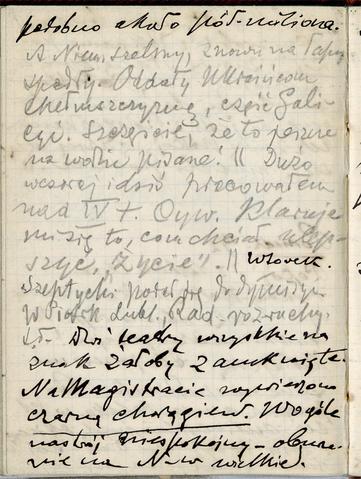 podobno około pół-miliona.
A Niemcy szelmy, znowu na łapy
spadły. Oddały Ukraińcom
Chełmszczyznę, część Gali-
cyi. Szczęście, że to jeszcze
na wodzie pisane! || Dużo
wczoraj i dziś pracowałem
nad IV t. Cyw. Klaruje
mi się to, com chciał ulep-
szyć, „Życie”. || Wtorek.
Szeptycki podał się do dymisyi.
W Piotrk. Lubl., Rad. rozruchy.
Dziś teatry wszystkie na
znak żałoby zamknięte.
Na Magistracie wywieszono
czarną chorągiew. Wogóle
nastrój niespokojny – oburze-
nie na N-ów wielkie.